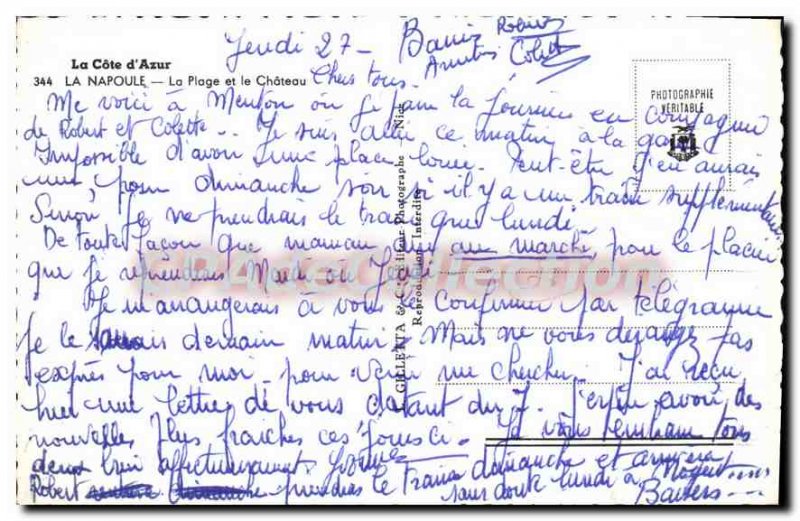 La Côte d'Azur
344 LA NAPOULE — La Plage et le Château
PHOTOGRAPHIE
VÉRITABLE
Jeudi 27 – Robert
Amitiés Colette
Chers tous.
Me voici à Menton où je passe la journée en compagnie
de Robert et Colette.. Je suis allé ce matin à la gare.
Impossible d'avoir une place louée. Peut-être j'en aurais
une, pour dimanche soir si il y a un train supplémentaire
Sinon je ne prendrais le train que lundi.
De toute façon que maman aille au marché pour le placier
que je reprendrais Mardi où Jeudi.
Je m'arrangerais à vous le confirmer par télégramme
je le saurais demain matin. Mais ne vous dérangez pas
exprès pour moi pour venir me chercher. J'ai reçu
hier une lettre de vous datant du 7. J'espère avoir des
nouvelles plus fraîches ces jours ci. Je vous embrasse tous
deux bien affectueusement Yvonne
Robert prendras le train dimanche et arrivera
sans doute lundi à Nogent
Baisers
L. GILLETTA & C. Editeur-Photographe - Nice
Reproduction Interdite
CPA Collection